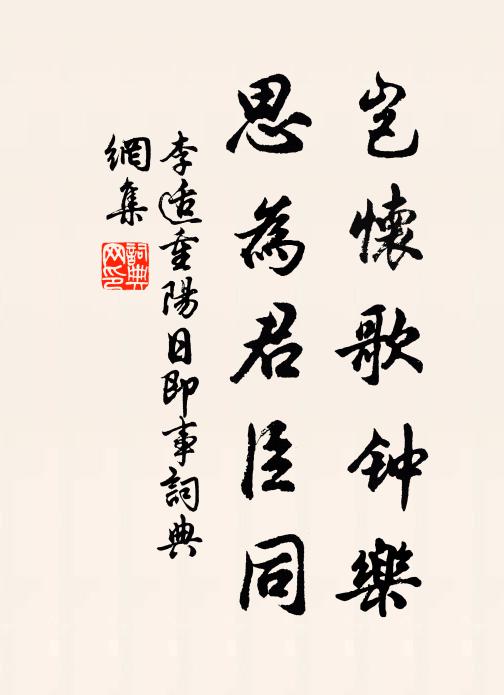 岂懷歌钟樂
思為君臣同
李适重陽日即事詞典
網集
詞典
网印